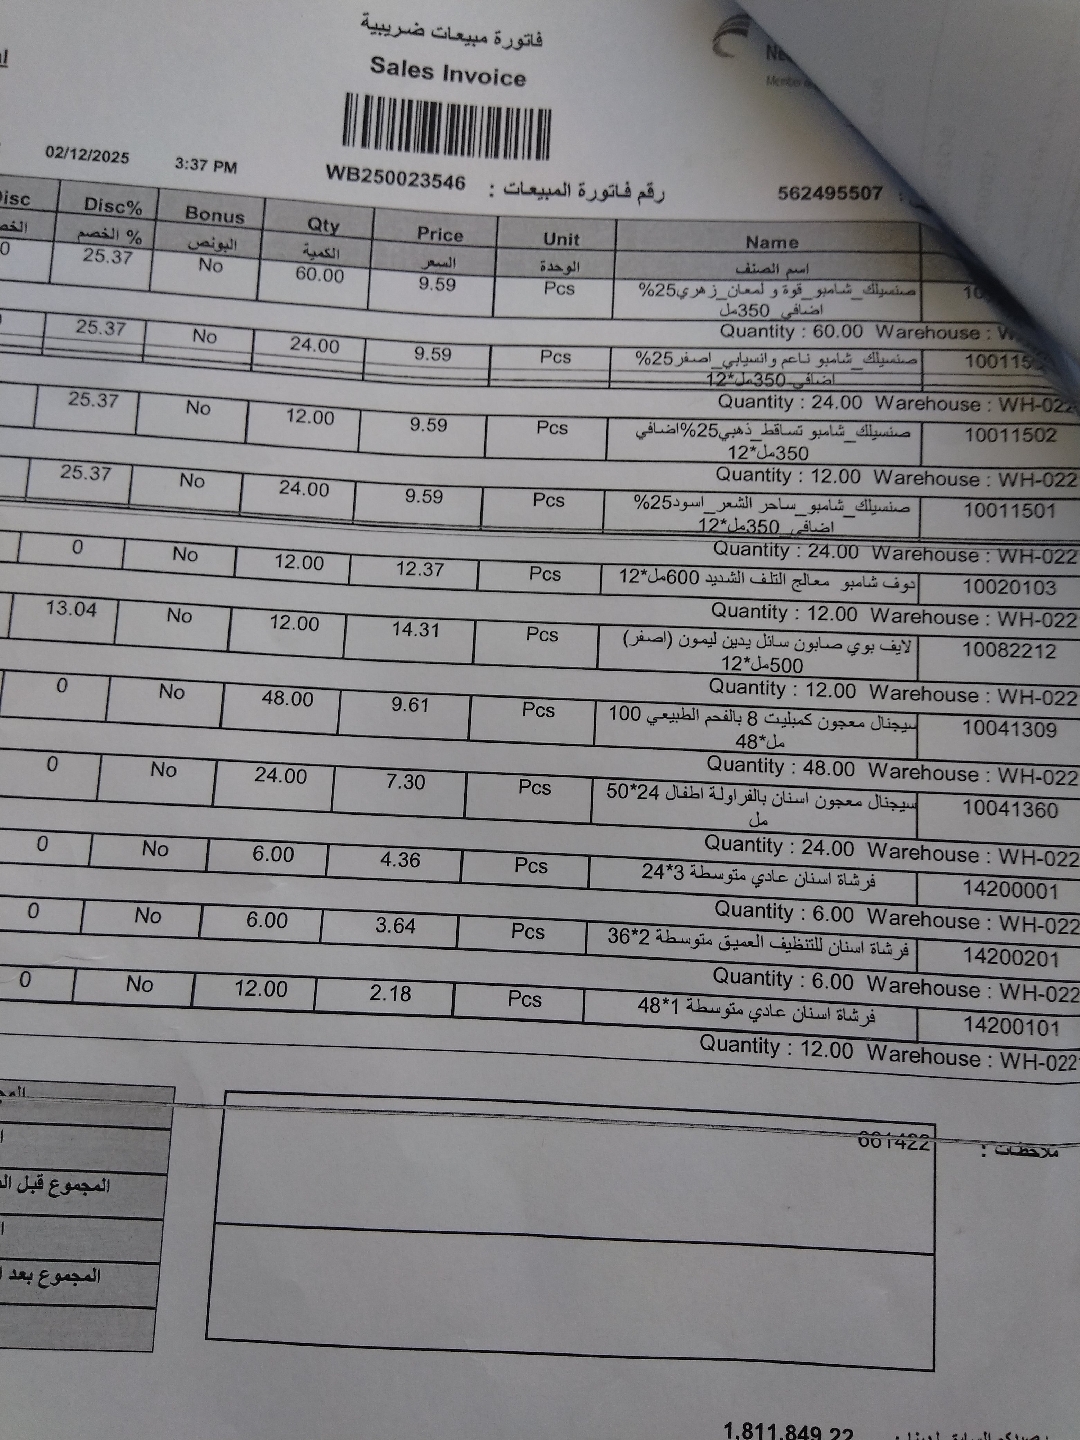 فاتورة مبيعات ضريبية
Sales Invoice
02/12/2025 3:37 PM
WB250023546 رقم فاتورة المبيعات :
562495507
Disc% Bonus Qty Price Unit Name
% الخصم البونص الكمية السعر الوحدة اسم الصنف
25.37 No 60.00 9.59 Pcs صنسيلك_شامبو_قوة و لمعان_زهري25%
اضافي_350مل
Quantity : 60.00 Warehouse :
25.37 No 24.00 9.59 Pcs صنسيلك_شامبو ناعم وانسيابي_اصفر25%
اضافي_350مل*12
Quantity : 24.00 Warehouse : WH-022
25.37 No 12.00 9.59 Pcs صنسيلك_شامبو تساقط_ذهبي25%اضافي 10011502
350مل*12
Quantity : 12.00 Warehouse : WH-022
25.37 No 24.00 9.59 Pcs صنسيلك_شامبو_ساحر الشعر_اسود25% 10011501
اضافي_350مل*12
Quantity : 24.00 Warehouse : WH-022
0 No 12.00 12.37 Pcs دوف شامبو معالج التلف الشديد 600مل*12 10020103
Quantity : 12.00 Warehouse : WH-022
13.04 No 12.00 14.31 Pcs لايف بوي صابون سائل يدين ليمون (اصفر) 10082212
500مل*12
Quantity : 12.00 Warehouse : WH-022
0 No 48.00 9.61 Pcs سيجنال معجون كمبليت 8 بالفحم الطبيعي 100 10041309
مل*48
Quantity : 48.00 Warehouse : WH-022
0 No 24.00 7.30 Pcs سيجنال معجون اسنان بالفراولة اطفال 24*50 10041360
مل
Quantity : 24.00 Warehouse : WH-022
0 No 6.00 4.36 Pcs فرشاة اسنان عادي متوسطة 3*24 14200001
Quantity : 6.00 Warehouse : WH-022
0 No 6.00 3.64 Pcs فرشاة اسنان للتنظيف العميق متوسطة 2*36 14200201
Quantity : 6.00 Warehouse : WH-022
0 No 12.00 2.18 Pcs فرشاة اسنان عادي متوسطة 1*48 14200101
Quantity : 12.00 Warehouse : WH-022
ملاحظات : 661422
المجموع قبل
المجموع بعد
1,811,849.22